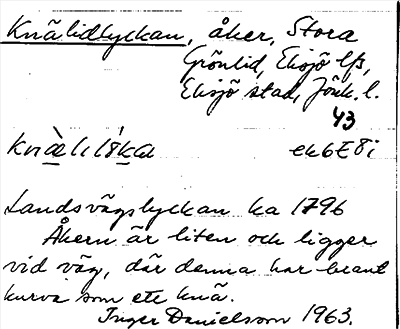 Knälidlyckan, åker, Stora
Grönlid, Eksjö lfs,
Eksjö stad, Jönk. l.
43
ek 6E 8i
Landsvägslyckan ka 1796
Åkern är liten och ligger
vid väg, där denna har brant
kurva som ett knä.
Inger Danielsson 1963.